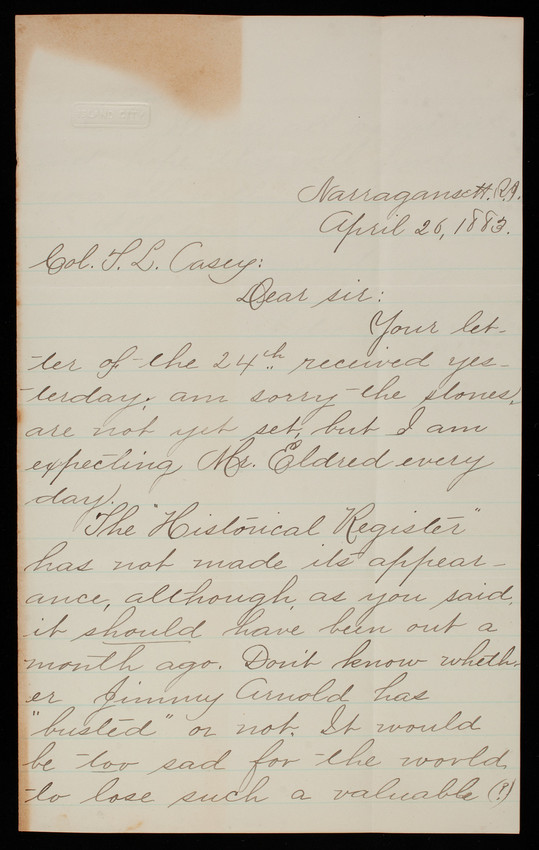 Narragansett, R.I.
April 26, 1883.
Col. T. L. Casey:
Dear sir:
Your let-
ter of the 24th. received yes-
terday; am sorry the stones,
are not yet set, but I am
expecting Mr. Eldred every
day.
The "Historical Register"
has not made its appear-
ance, although, as you said,
it should have been out a
month ago. Don't know wheth-
er Jimmy Arnold has
"busted" or not. It would
be too sad for the world
to lose such a valuable (?)